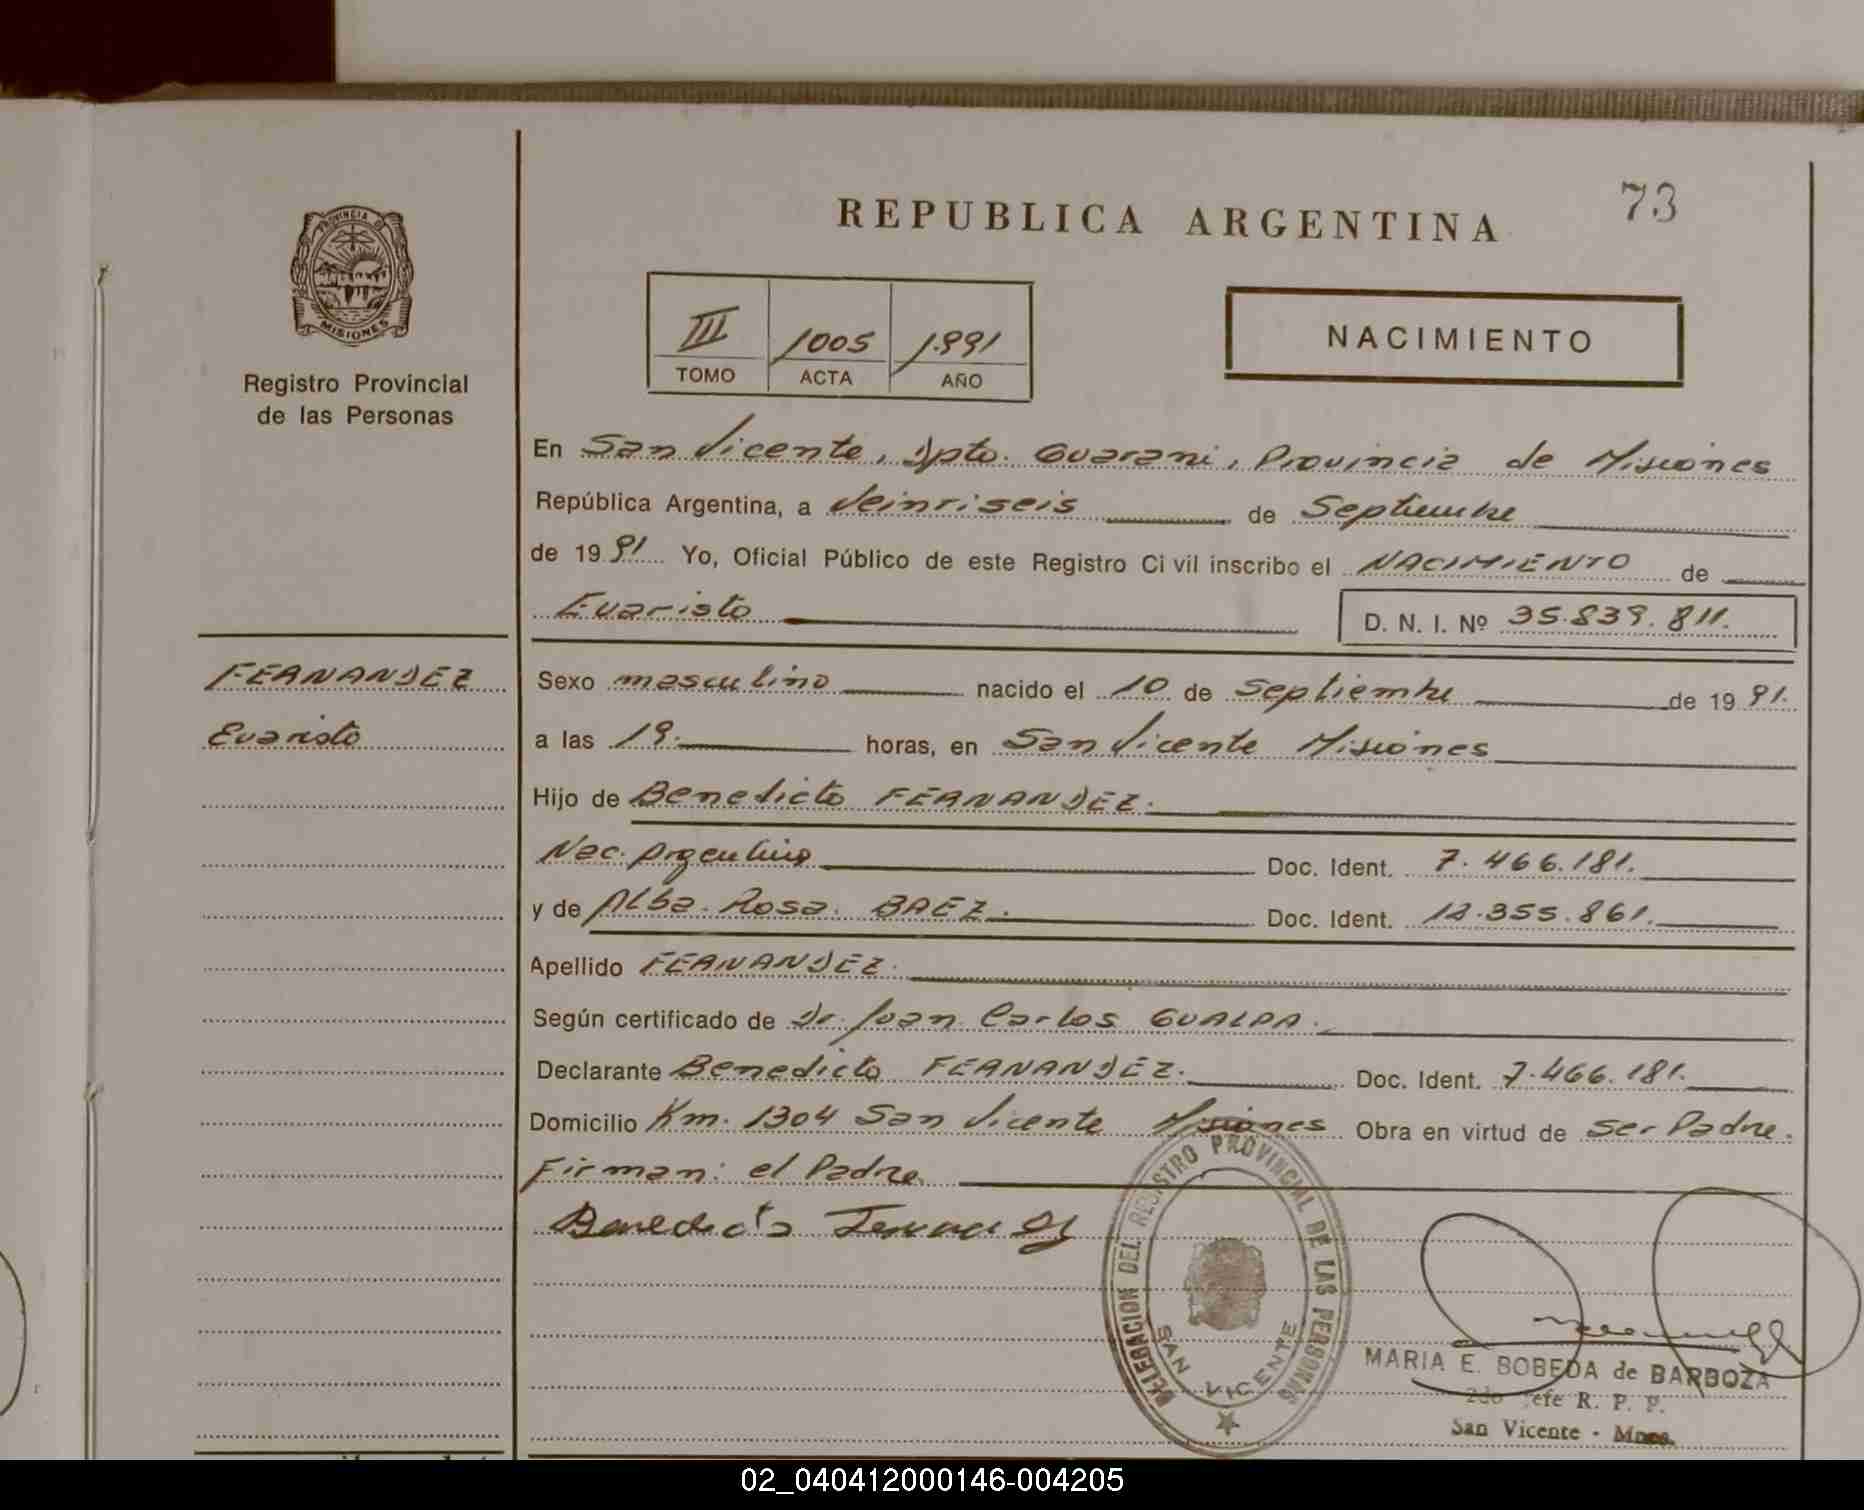 73
REPUBLICA ARGENTINA
PROVINCIA DE
MISIONES
Registro Provincial
de las Personas
III 1005 1.991
TOMO ACTA AÑO
NACIMIENTO
En San Vicente, Dpto. Guarani, Provincia de Misiones
República Argentina, a Veintiseis de Septiembre
de 1991 Yo, Oficial Público de este Registro Civil inscribo el NACIMIENTO de
Evaristo
D. N. I. Nº 35.839.811.
FERNANDEZ
Evaristo
Sexo masculino nacido el 10 de Septiembre de 1991.
a las 19. horas, en San Vicente Misiones
Hijo de Benedicto FERNANDEZ.
Nac. Argentino Doc. Ident. 7.466.181.
y de Alba Rosa BAEZ. Doc. Ident. 12.355.861.
Apellido FERNANDEZ.
Según certificado de Dr. Juan Carlos GUALPA.
Declarante Benedicto FERNANDEZ. Doc. Ident. 7.466.181.
Domicilio Km. 1304 San Vicente Misiones Obra en virtud de ser Padre.
Firman: el Padre
Benedicto Fernandez
DELEGACION DEL REGISTRO PROVINCIAL DE LAS PERSONAS
SAN VICENTE
MARIA E. BOBEDA de BARBOZA
2do Jefe R. P. P.
San Vicente - Mnes.
02_040412000146-004205